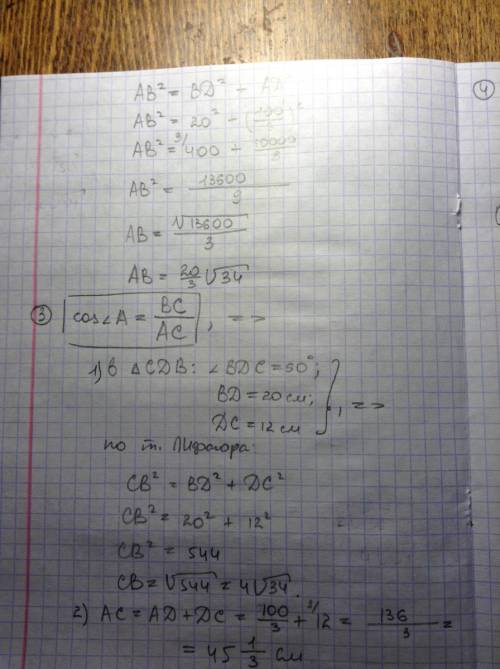 AB² = BD² + AD
AB² = 20² + (100/3)²
AB² = ³/400 + 10000/
AB² = 13600/9
AB = √13600/3
AB = 20/3 √34
③ cos∠A = BC/AC, =>
1) в △CDB: ∠BDC = 90°;
BD = 20 см;
DC = 12 см
, =>
по т. Пифагора:
CB² = BD² + DC²
CB² = 20² + 12²
CB² = 544
CB = √544 = 4√34.
2) AC = AD + DC = 100/3 + ³/12 = 136/3 =
= 45 1/3 см
④